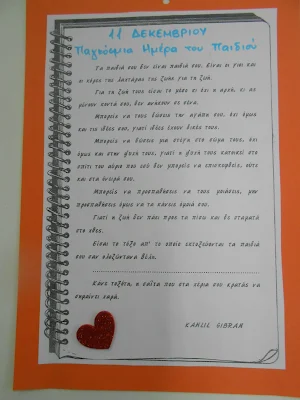 11 ΔΕΚΕΜΒΡΙΟΥ
Παγκόσμια Ημέρα του Παιδιού
Τα παιδιά σου δεν είναι παιδιά σου. Είναι οι γιοι και
οι κόρες της λαχτάρας της ζωής για τη ζωή.
Για τη ζωή τους είσαι το μέσο κι όχι η αρχή, κι ας
μένουν κοντά σου, δεν ανήκουν σε σένα.
Μπορείς να τους δώσεις την αγάπη σου, όχι όμως
και τις ιδέες σου, γιατί ιδέες έχουν δικές τους.
Μπορείς να δώσεις μια στέγη στο σώμα τους, όχι
όμως και στην ψυχή τους, γιατί η ψυχή τους κατοικεί στο
σπίτι του αύριο που εσύ δεν μπορείς να επισκεφθείς, ούτε
και στα όνειρά σου.
Μπορείς να προσπαθήσεις να τους μοιάσεις, μην
προσπαθήσεις όμως να τα κάνεις όμοιά σου.
Γιατί η ζωή δεν πάει προς τα πίσω και δε σταματά
στο χθες.
Είσαι το τόξο απ' το οποίο εκτοξεύονται τα παιδιά
σου σαν ολοζώντανα βέλη.
Κάνε τοξότη, η σαΐτα που στα χέρια σου κρατάς να
σημαίνει χαρά.
KAHLIL GIBRAN